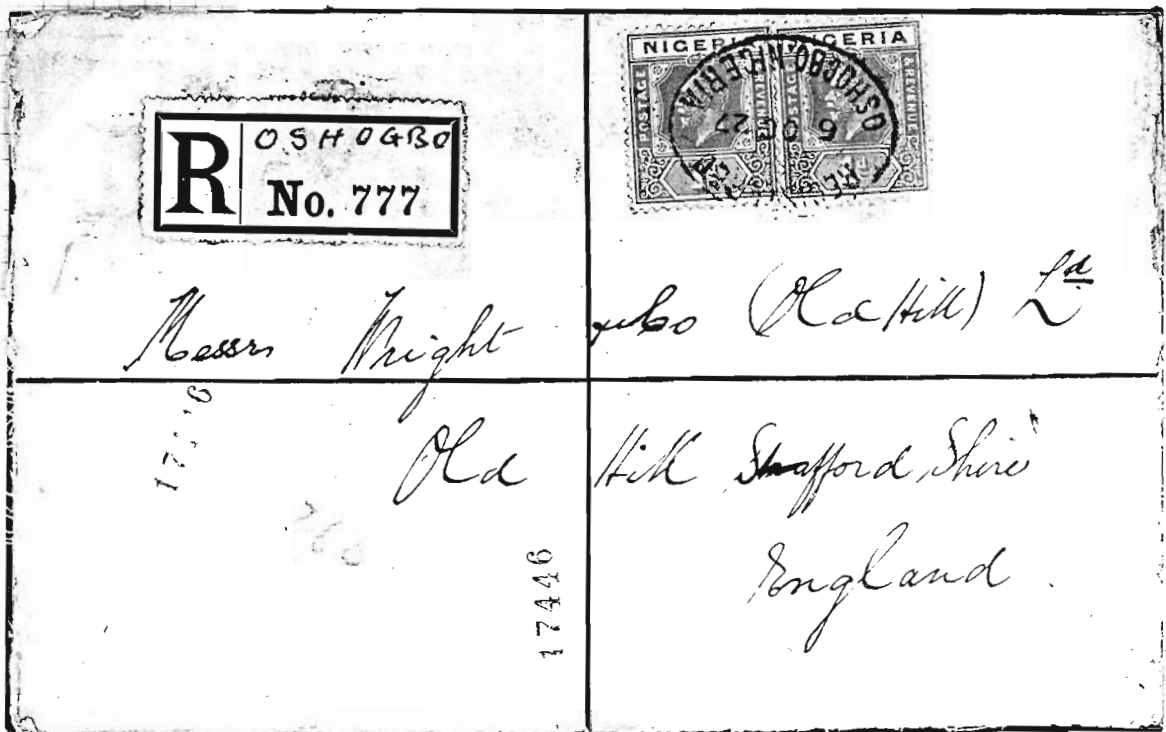 R OSHOGBO
No. 777
NIGERIA NIGERIA
POSTAGE & REVENUE POSTAGE & REVENUE
OSHOGBO NIGERIA
Messrs Wright & Co (Old Hill) Ld
Old Hill Staffordshire
England
17446